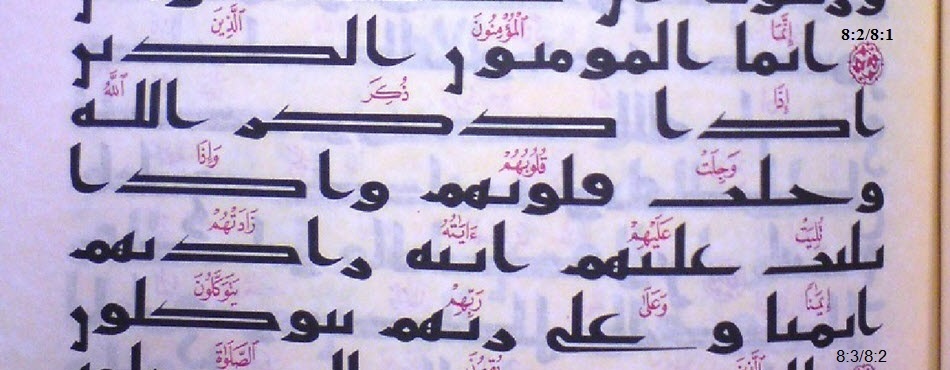 8:2/8:1
إِنَّمَا ٱلْمُؤْمِنُونَ ٱلَّذِينَ
انما المومنون الذين
إِذَا ذُكِرَ ٱللَّهُ
اذا ذكر الله
وَجِلَتْ قُلُوبُهُمْ وَإِذَا
وجلت قلوبهم واذا
تُلِيَتْ عَلَيْهِمْ ءَايَٰتُهُۥ زَادَتْهُمْ
تليت عليهم ايته زادتهم
إِيمَٰنًا وَعَلَىٰ رَبِّهِمْ يَتَوَكَّلُونَ
ايمنا و على ربهم يتوكلون
8:3/8:2
ٱلَّذِينَ يُقِيمُونَ ٱلصَّلَوٰةَ